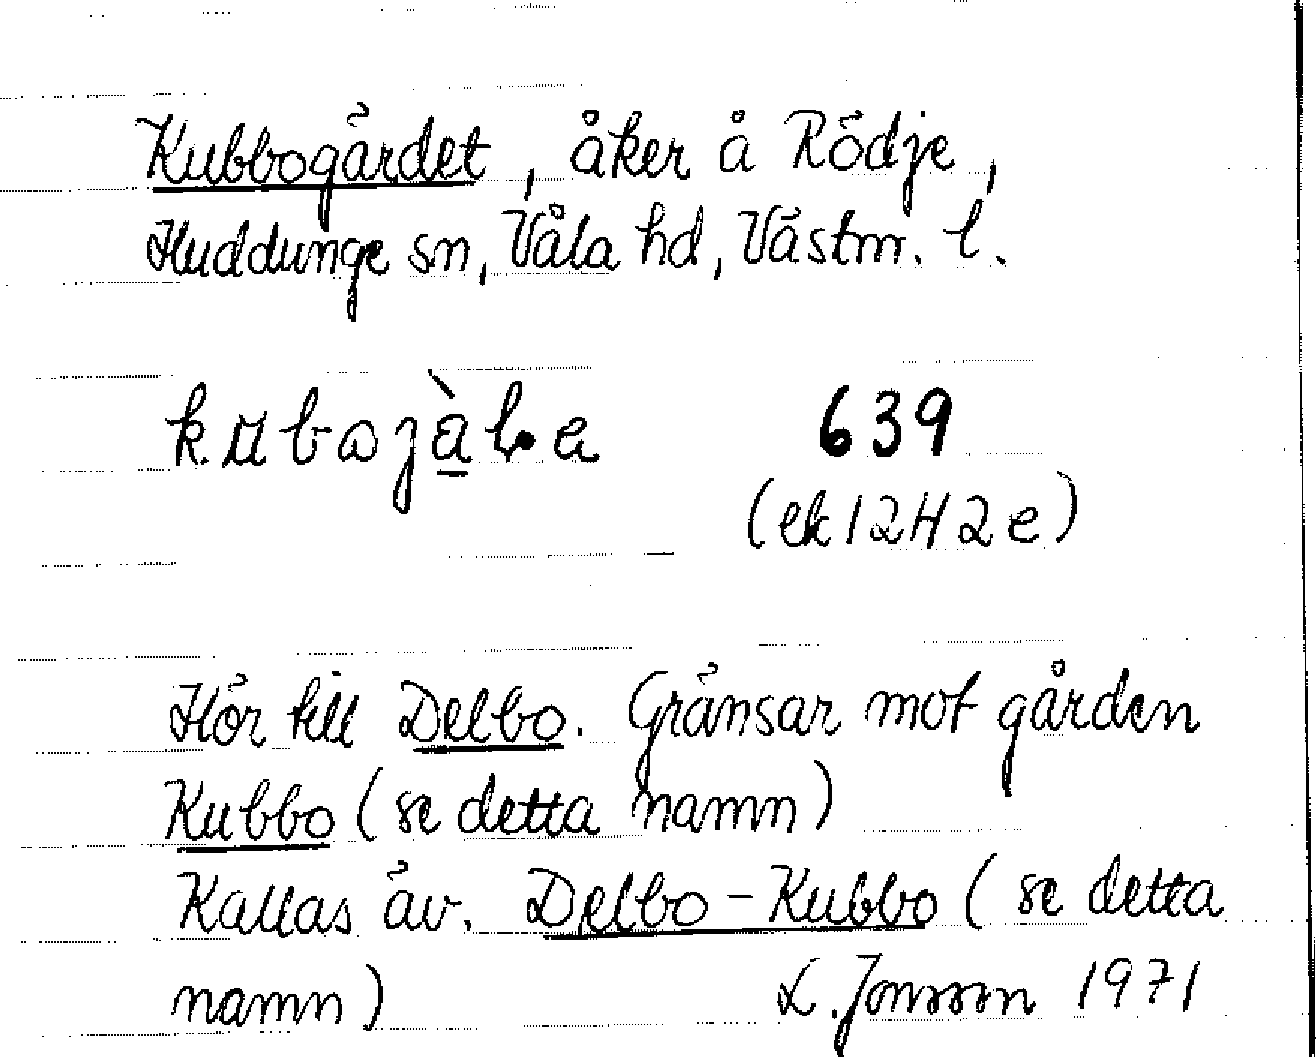 Kubbogärdet, åker å Rödje,
Huddunge sn, Våla hd, Västm. l.
639
(ek 12H2e)
Hör till Delbo. Gränsar mot gården
Kubbo (se detta namn)
Kallas äv. Delbo-Kubbo (se detta
namn) L. Jonsson 1971